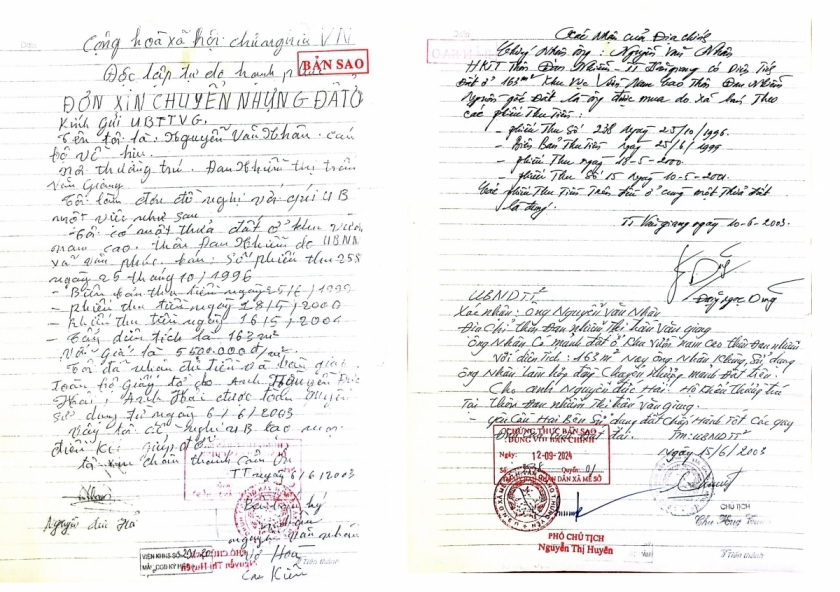 Cộng hoà xã hội chủ nghĩa VN
BẢN SAO
Độc lập tự do hạnh
ĐƠN XIN CHUYỂN NHƯỢNG ĐẤT Ở
Kính gửi UBTTVG.
Tên tôi là: Nguyễn Văn Nhân. cán
bộ về hưu.
nơi thường trú. Đan Nhiễm thị trấn
Văn Giang
Tôi làm đơn đề nghị với quí UB
một việc như sau
- Tôi có một thửa đất ở khu vườn
nam cao. thôn Đan Nhiễm do UBND
xã văn phúc. bán: Số phiếu thu 258
ngày 25 tháng 10/1996
- Biên bản thu tiền ngày 25/6/1999
- phiếu thu tiền ngày 18/5/2000
- phiếu thu tiền ngày 16/5/2001
- Tổng diện tích là 163 m2
Với giá là 5500.000đ/m2
Tôi đã nhận đủ tiền và bàn giao
toàn bộ giấy tờ do Anh Nguyễn Đức
Hải, Anh Hải được toàn quyền
sử dụng từ ngày 6/6/2003
Vậy tôi đề nghị UB tạo mọi
điều kiện giúp đỡ
tôi xin chân thành cảm ơn
TT ngày 6/6/2003
Nguyễn Đức Hải
nguyễn văn nhân
Vợ Hoa
Cao Kiên
VIỆN KHNS SỐ
Nguyễn Thị Huyên
Tiến thành
Xác nhận của Địa chính
Chứng nhận ông: Nguyễn Văn Nhân
HKTT Thôn Đan Nhiễm. TT Văn giang có Diện Tích
Đất ở 163m2 Khu Vực Vườn Nam Cao Thôn Đan Nhiễm
Nguồn gốc Đất là ông được mua do xã bán Theo
các phiếu Thu Tiền:
- phiếu Thu Số 238 Ngày 25/10/1996.
- Biên Bản Thu Tiền Ngày 25/6/1999
- phiếu Thu ngày 18-5-2000.
- phiếu Thu Số 15 Ngày 10-5-2001.
Các phiếu Thu Tiền Trên đều ở cùng một Thửa đất
là đúng.
TT Văn giang ngày 10-6-2003.
Đặng Ngọc Dũng
UBNDTT
Xác nhận: Ông Nguyễn Văn Nhân
Địa Chỉ thôn đan nhiễm thị trấn văn giang
Ông Nhân Có mảnh đất ở Khu Vườn nam cao thôn đan nhiễm
với diện Tích: 163 m2 Nay ông Nhân Không Sử dụng
Ông Nhân làm hợp đồng Chuyển Nhượng mảnh Đất trên.
Cho anh Nguyễn đức Hải. Hộ Khẩu Thường trú
Tại Thôn Đan nhiễm Thị trấn Văn giang.
- yêu Cầu Hai Bên Sử dụng đất Chấp Hành Tốt Các quy
đất đai.
TM: UBNDTT
Ngày 15/6/2003
CHỨNG THỰC BẢN SAO
ĐÚNG VỚI BẢN CHÍNH
Ngày: 12-09-2024
Quyển: 01
ỦY BAN NHÂN DÂN XÃ MỄ SỞ
PHÓ CHỦ TỊCH
Nguyễn Thị Huyên
CHỦ TỊCH
Tiến thành